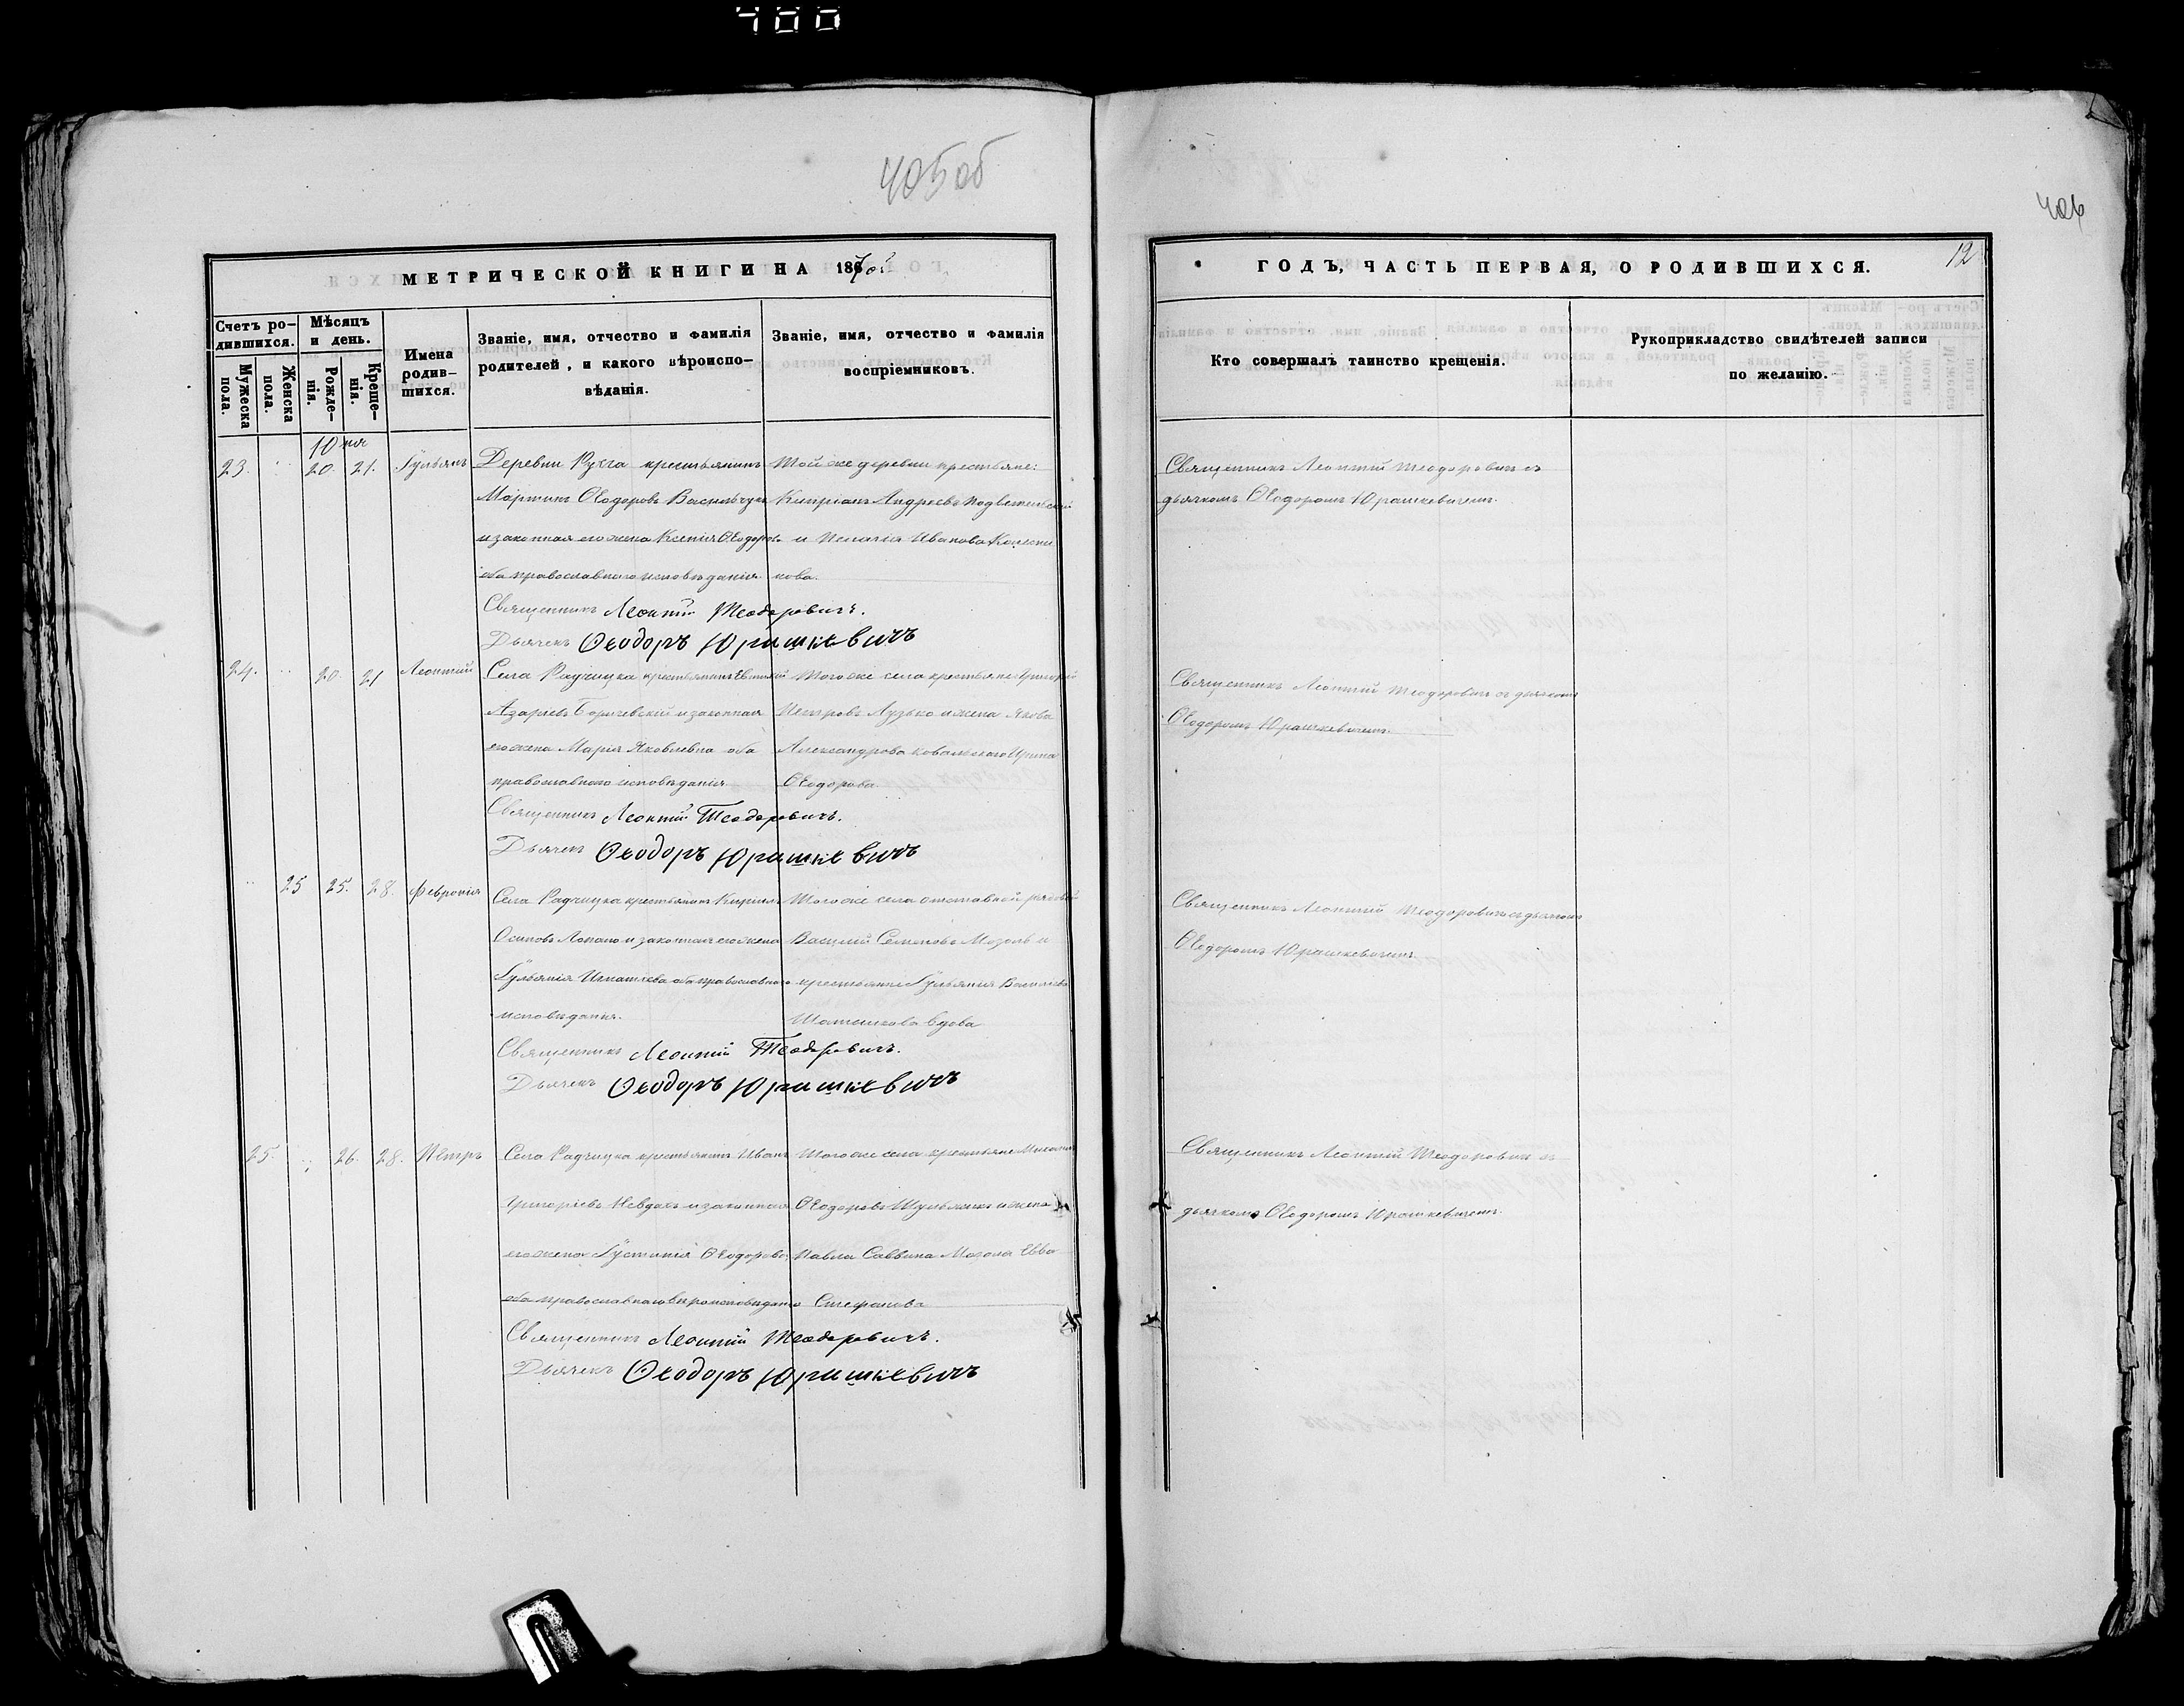 400
405об
406
МЕТРИЧЕСКОЙ КНИГИ НА 1870й
ГОДЪ, ЧАСТЬ ПЕРВАЯ, О РОДИВШИХСЯ.
12
Счетъ родившихся.
Мужеска пола.
Женска пола.
Мѣсяцъ и день.
Рожденія.
Крещенія.
Имена родившихся.
Званіе, имя, отчество и фамилія родителей, и какого вѣроисповѣданія.
Званіе, имя, отчество и фамилія воспріемниковъ.
Кто совершалъ таинство крещенія.
Рукоприкладство свидѣтелей записи по желанію.
23. 20. 21. Іульянъ
Деревни крестьянинъ
Мартинъ Ѳеодоровъ Васильчукъ
и законная его жена Ксенія Ѳеодорова
оба православнаго исповѣданія
Той же деревни крестьяне:
Кипріанъ Андреевъ
и Пелагія Иванова
Священникъ Леонтій Теодоровичъ.
Дьячекъ Ѳеодоръ Юрашкевичъ
Священникъ Леонтій Теодоровичъ съ
дьячкомъ Ѳеодоромъ Юрашкевичемъ.
24. 20. 21 Леонтій
Села Радчицка крестьянинъ
Азаріевъ Боричевскій и законная
его жена Марія Яковлевна оба
православнаго исповѣданія
Того же села крестьяне Григорій
Петровъ Лузько и жена Якова
Александрова Ковальскаго Ирина
Ѳеодорова
Священникъ Леонтій Теодоровичъ.
Дьячекъ Ѳеодоръ Юрашкевичъ
Священникъ Леонтій Теодоровичъ съ дьячкомъ
Ѳеодоромъ Юрашкевичемъ.
25 25. 28. Февронія
Села Радчицка крестьянинъ Кириллъ
Осиповъ Лопато и законная его жена
Іульянія Игнатіева оба православнаго
исповѣданія.
Того же села отставной рядовой
Василій Семеновъ Мозоль и
крестьянка Іульянія Васильева
вдова
Священникъ Леонтій Теодоровичъ.
Дьячекъ Ѳеодоръ Юрашкевичъ
Священникъ Леонтій Теодоровичъ съ дьячкомъ
Ѳеодоромъ Юрашкевичемъ.
25. 26. 28. Петръ
Села Радчицка крестьянинъ Иванъ
Григоріевъ Невдахъ и законная
его жена Іустинія Ѳеодорова
оба православнаго вѣроисповѣданія
Того же села крестьяне
Ѳеодоровъ Шульжикъ и жена
Павла Саввина Мозоля Евва
Стефанова
Священникъ Леонтій Теодоровичъ.
Дьячекъ Ѳеодоръ Юрашкевичъ
Священникъ Леонтій Теодоровичъ съ
дьячкомъ Ѳеодоромъ Юрашкевичемъ.